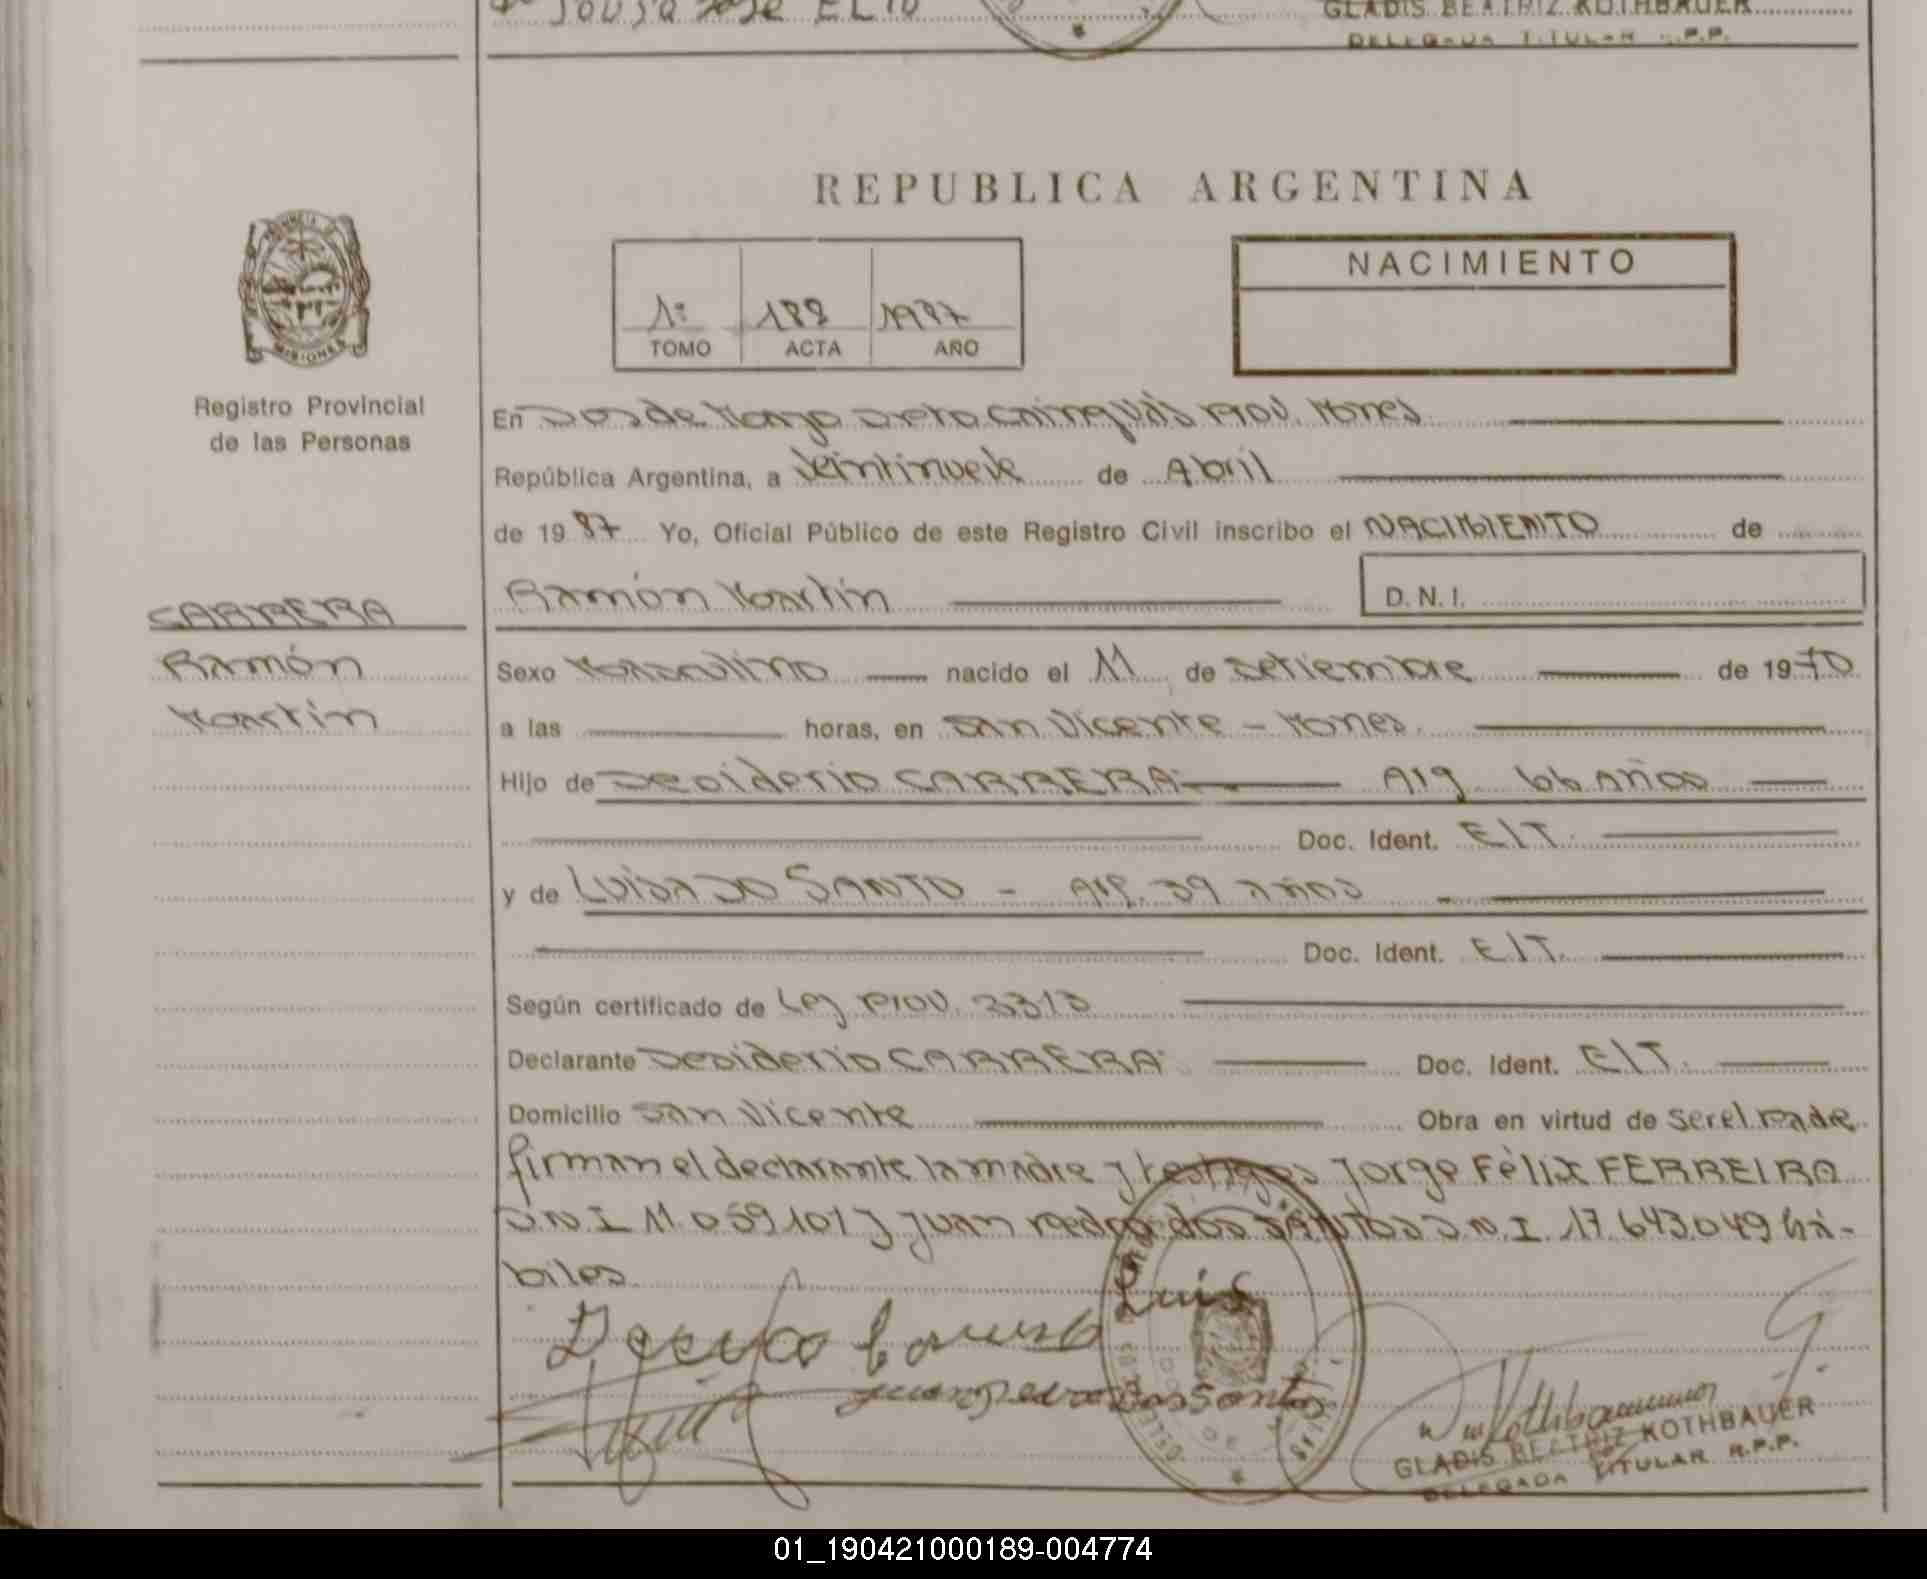 SOUSA José ELIO
GLADIS BEATRIZ KOTHBAUER
DELEGADA TITULAR R.P.P.
REPUBLICA ARGENTINA
PROVINCIA
MISIONES
Registro Provincial
de las Personas
1º 188 1987
TOMO ACTA AÑO
NACIMIENTO
En Dos de Mayo Depto Cainguás Prov. Mnes
República Argentina, a Veintinueve de Abril
de 1987 Yo, Oficial Público de este Registro Civil inscribo el NACIMIENTO de
Ramón Martín D. N. I.
CARRERA
Ramón
Martín
Sexo Masculino nacido el 11 de Setiembre de 1970
a las horas, en San Vicente - Mnes.
Hijo de Desiderio CARRERA Arg 66 Años
Doc. Ident. E/T.
y de LUISA DO SANTO - Arg. 39 años
Doc. Ident. E/T.
Según certificado de Ley Prov. 2313
Declarante Desiderio CARRERA Doc. Ident. E/T.
Domicilio San Vicente Obra en virtud de ser el Padre
firman el declarante la madre y testigos Jorge Félix FERREIRA
D.N.I 11.059.101 y Juan Pedro dos SANTOS D.N.I. 17.643.049 há-
biles
Luis
Juan Pedro Dos Santos
Kothbauer
GLADIS BEATRIZ KOTHBAUER
DELEGADA TITULAR R.P.P.
01_190421000189-004774